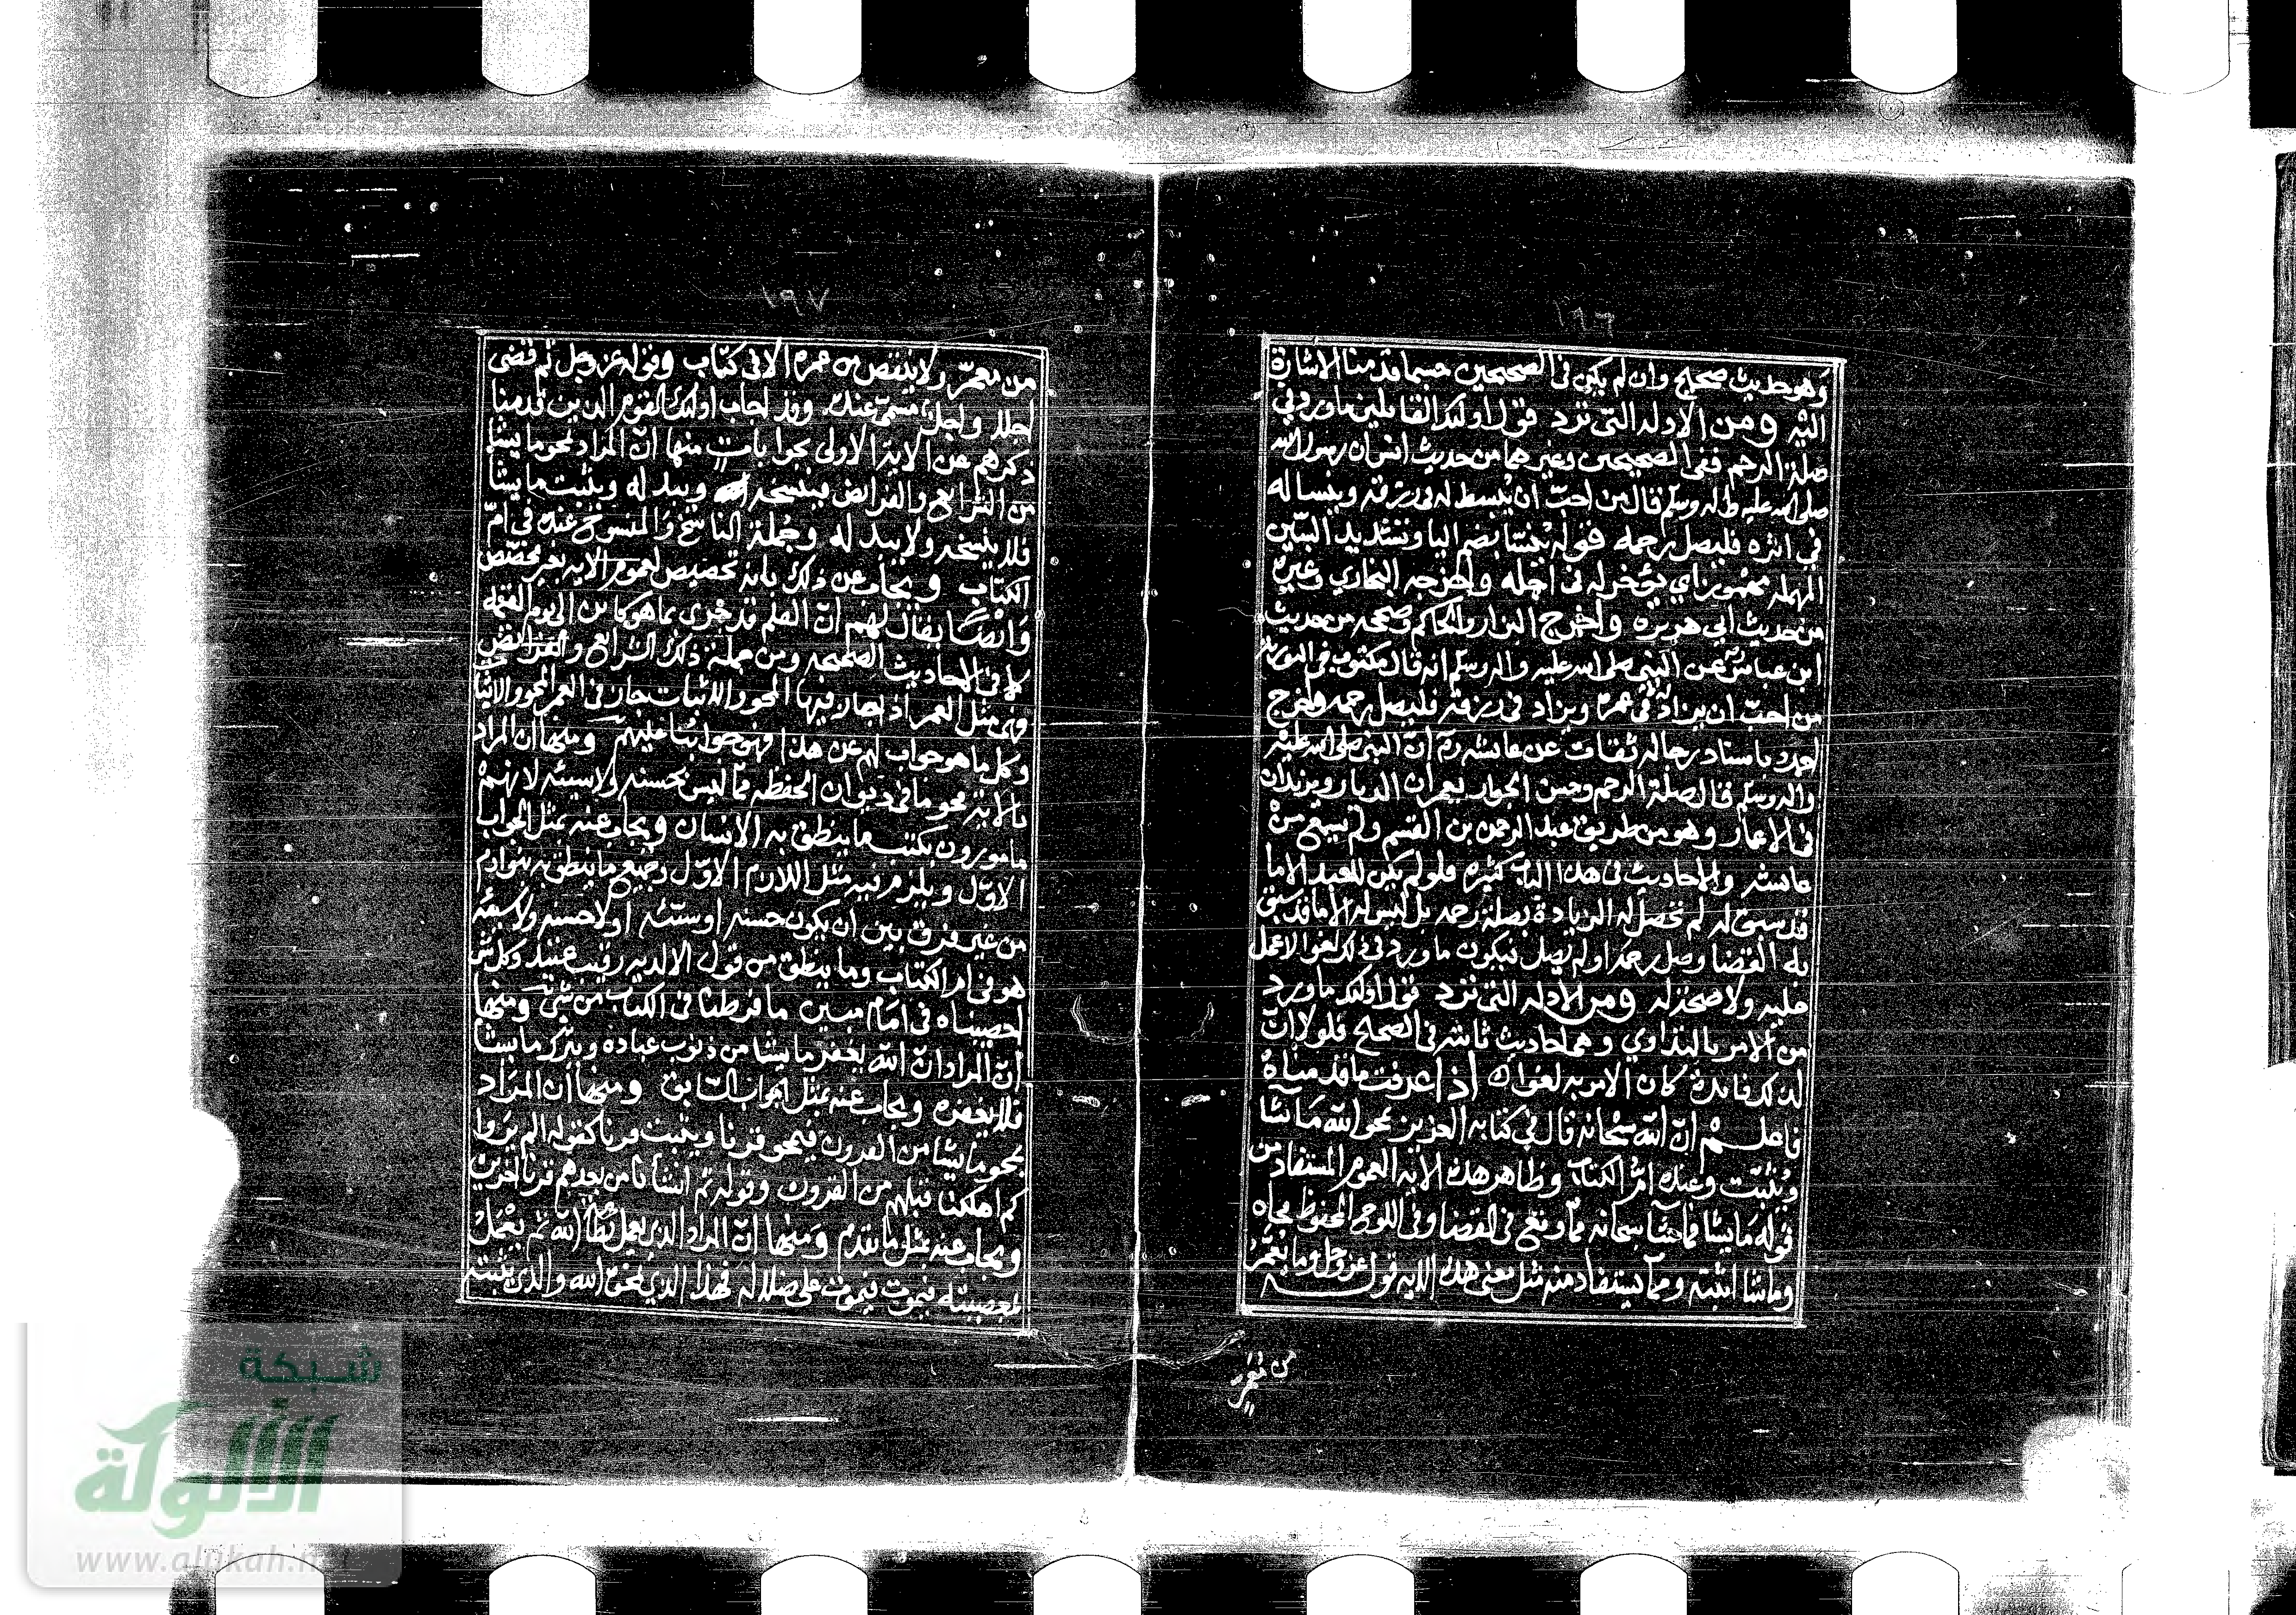 ١٩٦
وهو حديث صحيح وان لم يكن في الصحيحين حسبما قدمنا الاشارة
اليه ومن الادله التي ترد قول اولئك القايلين ما ورد في
صلة الرحم ففي الصحيحين وغيرهما من حديث انس ان رسول الله
صلى الله عليه واله وسلم قال من احبّ ان يبسط له في رزقه وينسا له
في اثره فليصل رحمه قوله ينسا بضم اليا وتشديد السّين
المهمله مهموز اي يؤخر له في اجله واخرجه البخاري وغيره
من حديث ابي هريرة واخرج البزار والحاكم وصححه من حديث
ابن عباس عن النبي صلى الله عليه واله وسلم انه قال مكتوب في التوراة
من احبّ ان يزاد في عمره ويزاد في رزقه فليصل رحمه واخرج
احمد باسناد رجاله ثقات عن عائشه رض انّ النبي صلى الله عليه
واله وسلم قال صلة الرحم وحسن الجوار يعمران الديار ويزيدان
في الاعمار وهو من طريق عبد الرحمن بن القسم ولم يسمع من
عائشه والاحاديث في هذا الباب كثيره فلو لم يكن للعبد الا ما
قد سبق له لم تحصل له الزيادة بصلة رحمه بل ليس له الا ما قد سبق
به القضا وصل رحمه او لم يصل فيكون ما ورد في ذلك لغوا لاعمل
عليه ولا صحة له ومن الادله التي ترد قول اولئك ما ورد
من الامر بالتداوي وهي احاديث ثابته في الصحاح فلولا انّ
لذلك فائدة كان الامر به لغوا اذا عرفت ما قدمناه
فاعلم انّ الله سبحانه قال في كتابه العزيز يمحو الله ما يشا
ويثبت وعنده امّ الكتاب وظاهر هذه الايه العموم المستفاد من
قوله ما يشا فما شا سبحانه ممّا وقع في القضا وفي اللوح المحفوظ محاه
وما شا اثبته وممّا يستفاد منه مثل معنى هذه الايه قوله عز وجل وما يُعمّرُ
من معمّر
١٩٧
من معمّر ولا ينقص من عمره الا في كتاب وقوله عز وجل ثم قضى
اجلا واجل مسمّى عنده وقد اجاب اولئك القوم الذين قدمنا
ذكرهم عن الاية الاولى بجوابات منها انّ المراد يمحو ما يشا
من الشرايع والفرائض فينسخه ويبدله ويثبت ما يشا
فلا ينسخه ولا يبدله وجملة الناسخ والمنسوخ عنده في امّ
الكتاب ويجاب عن ذلك بانه تخصيص لعموم الايه بغير مخصّص
وايضًا يقال لهم انّ القلم قد جرى بما هو كائن الى يوم القيمه
كما في الاحاديث الصحيحه ومن جملة ذلك الشرائع والفرائض
فهي مثل العمر اذا جاز فيها المحو والاثبات جاز في العمر المحو والاثبات
وكل ما هو جواب لهم عن هذا فهو جوابنا عليهم ومنها ان المراد
بالاية محو ما في ديوان الحفظه ممّا ليس بحسنه ولا سيئه لانهم
مامورون بكتب ما ينطق به الانسان ويجاب عنه بمثل الجواب
الاوّل ويلزم فيه مثل اللازم الاوّل وجميع ما ينطق به بنو ادم
من غير فرق بين ان يكون حسنه او سيّئه او لا حسنه ولا سيئه
هو في ام الكتاب وما ينطق من قول الا لديه رقيب عتيد وكل شي
احصيناه في امام مبين ما فرطنا في الكتاب من شيّ ومنها
انّ المراد انّ الله يغفر ما يشا من ذنوب عباده ويترك ما يشا
فلا يغفره ويجاب عنه بمثل الجواب السابق ومنها ان المراد
يمحو ما يشا من القرون فيمحو قرنا ويثبت قرنا كقوله الم يروا
كم اهلكنا قبلهم من القرون وقوله ثم انشأنا من بعدهم قرنا اخرين
ويجاب عنه بمثل ما تقدم ومنها انّ المراد الذي يعمل بطاعة الله ثم يعمل
بمعصيته فيموت فيموت على ضلاله فهذا الذي يمحوه الله والذي يثبته
شبكة
الألوكة
www.alukah.net